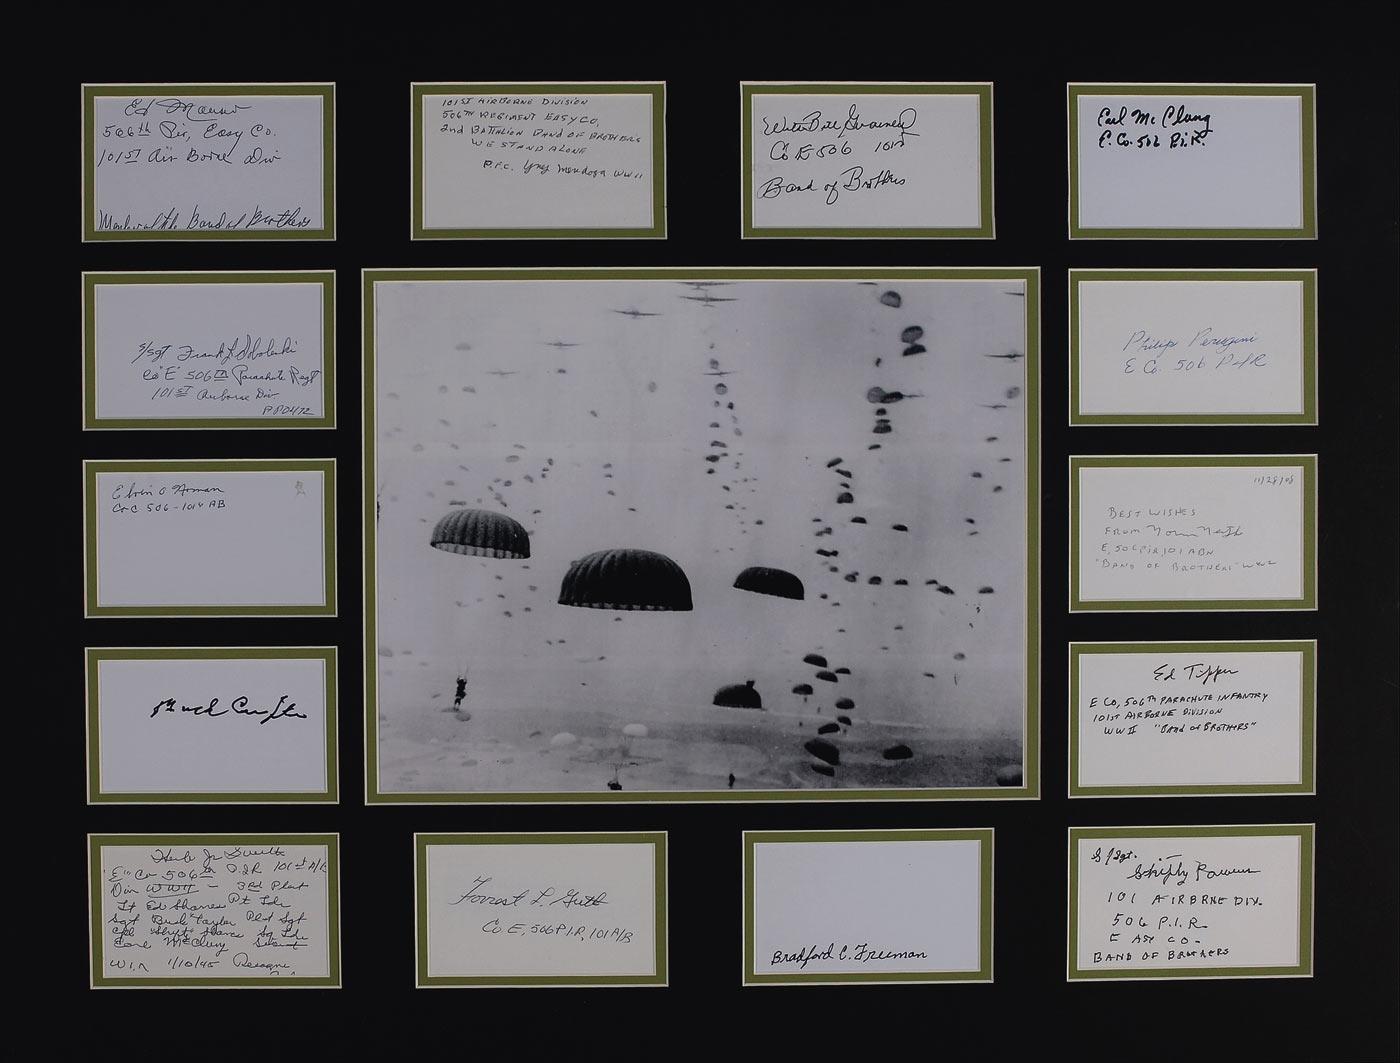 Ed Mauser
506th Pir, Easy Co.
101ST Air Borne Div
Band of Brothers
101ST AIRBORNE DIVISION
506TH REGIMENT EASY CO,
2nd BATTALION BAND OF BROTHERS
WE STAND ALONE
P.F.C. Yng Mendoza WW II
Co E 506 101st
Band of Brothers
Earl Mc Clung
E. Co. 506 P.I.R.
S/Sgt Frank J Soboleski
Co "E" 506TH Parachute Regt
101ST Airborne Div
Philip Perugini
E Co. 506 P I R
Elvin O Homan
Co C 506 - 101st AB
11/28/08
BEST WISHES
FROM Norman Neitzke
E, 506 PIR, 101 ABN
"BAND OF BROTHERS" WW2
Buck Compton
Ed Tipper
E CO, 506TH PARACHUTE INFANTRY
101ST AIRBORNE DIVISION
WW II "BAND OF BROTHERS"
Herb Jr Suerth
"E" Co 506th P.I.R 101st A/B
Div WWII - 3rd Plat
Lt Ed Shames Pt Ldr
Sgt "Buck" Taylor Plt Sgt
Earl McClung Scout
W.I.A 1/10/45
Forrest L. Guth
Co E, 506 P.I.R, 101 A/B
Bradford C. Freeman
S/Sgt.
Shifty Powers
101 AIRBRNE DIV.
506 P.I.R.
EASY CO-
BAND OF BROTHERS